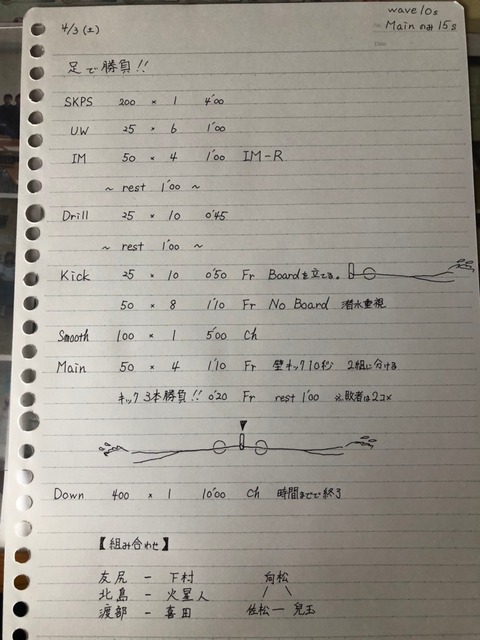 wave10s
Mainのみ 15s
4/3 (土)
Date
足で勝負!!
SKPS 200 × 1 4'00
UW 25 × 6 1'00
IM 50 × 4 1'00 IM-R
~ rest 1'00 ~
Drill 25 × 10 0'45
~ rest 1'00 ~
Kick 25 × 10 0'50 Fr Boardを立てる。
50 × 8 1'10 Fr No Board 潜水重視
Smooth 100 × 1 5'00 Ch
Main 50 × 4 1'10 Fr 壁キック10秒 2組に分ける
キック3本勝負!! 0'20 Fr rest 1'00 ※敗者は2コメ
Down 400 × 1 10'00 Ch 時間までで終了
【組み合わせ】
友尻 - 下村 向松
北島 - 火星人
渡部 - 喜田 佐松 - 兒玉